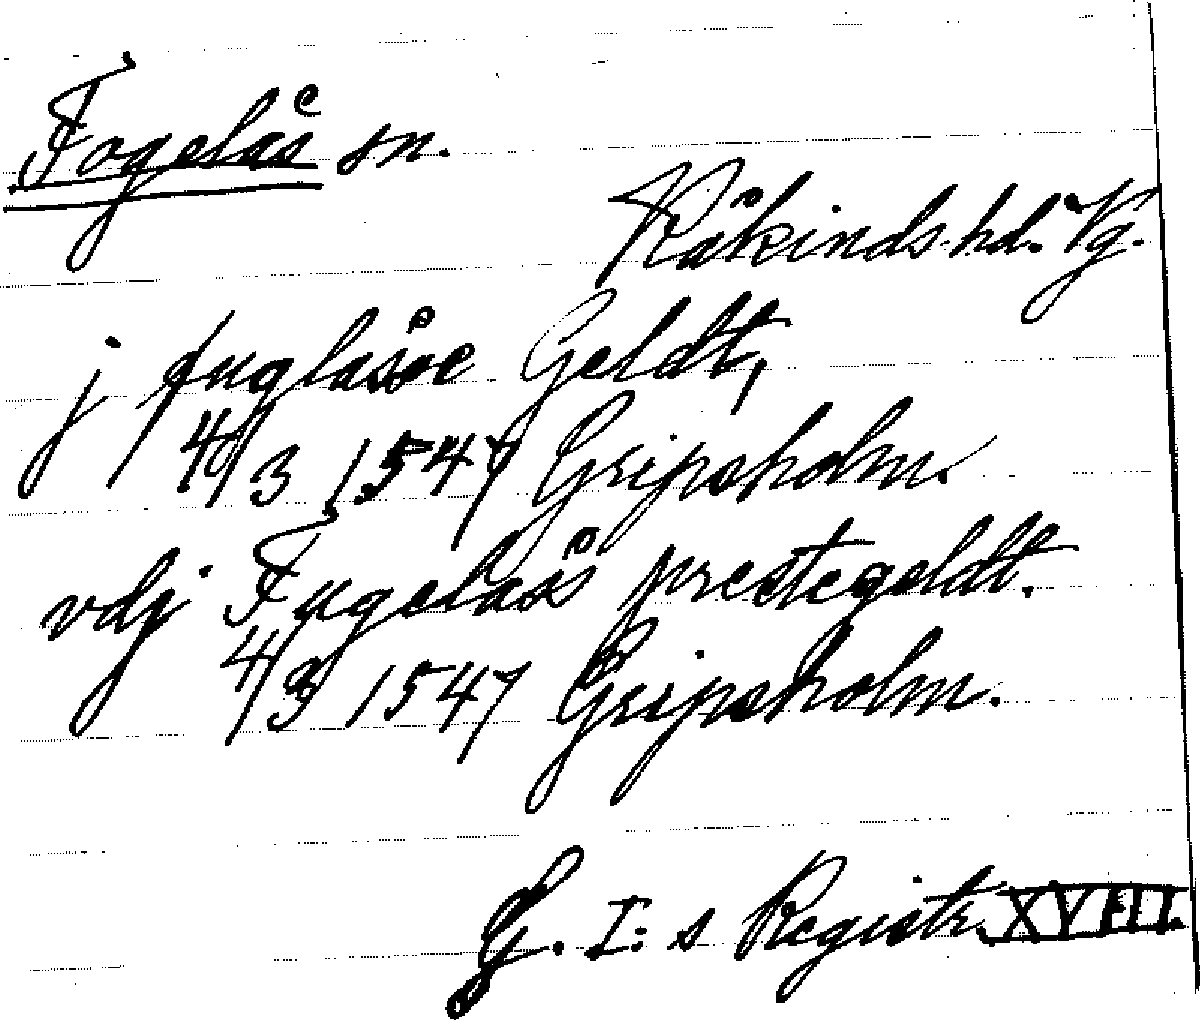 Fogelås sn.
Kåkinds hd. Vg.
j fuglaåse Geldt,
4/3 1547 Gripsholm.
vdj Fugelås prestegeldt.
4/3 1547 Gripsholm.
G. I:s Registr. XVIII.